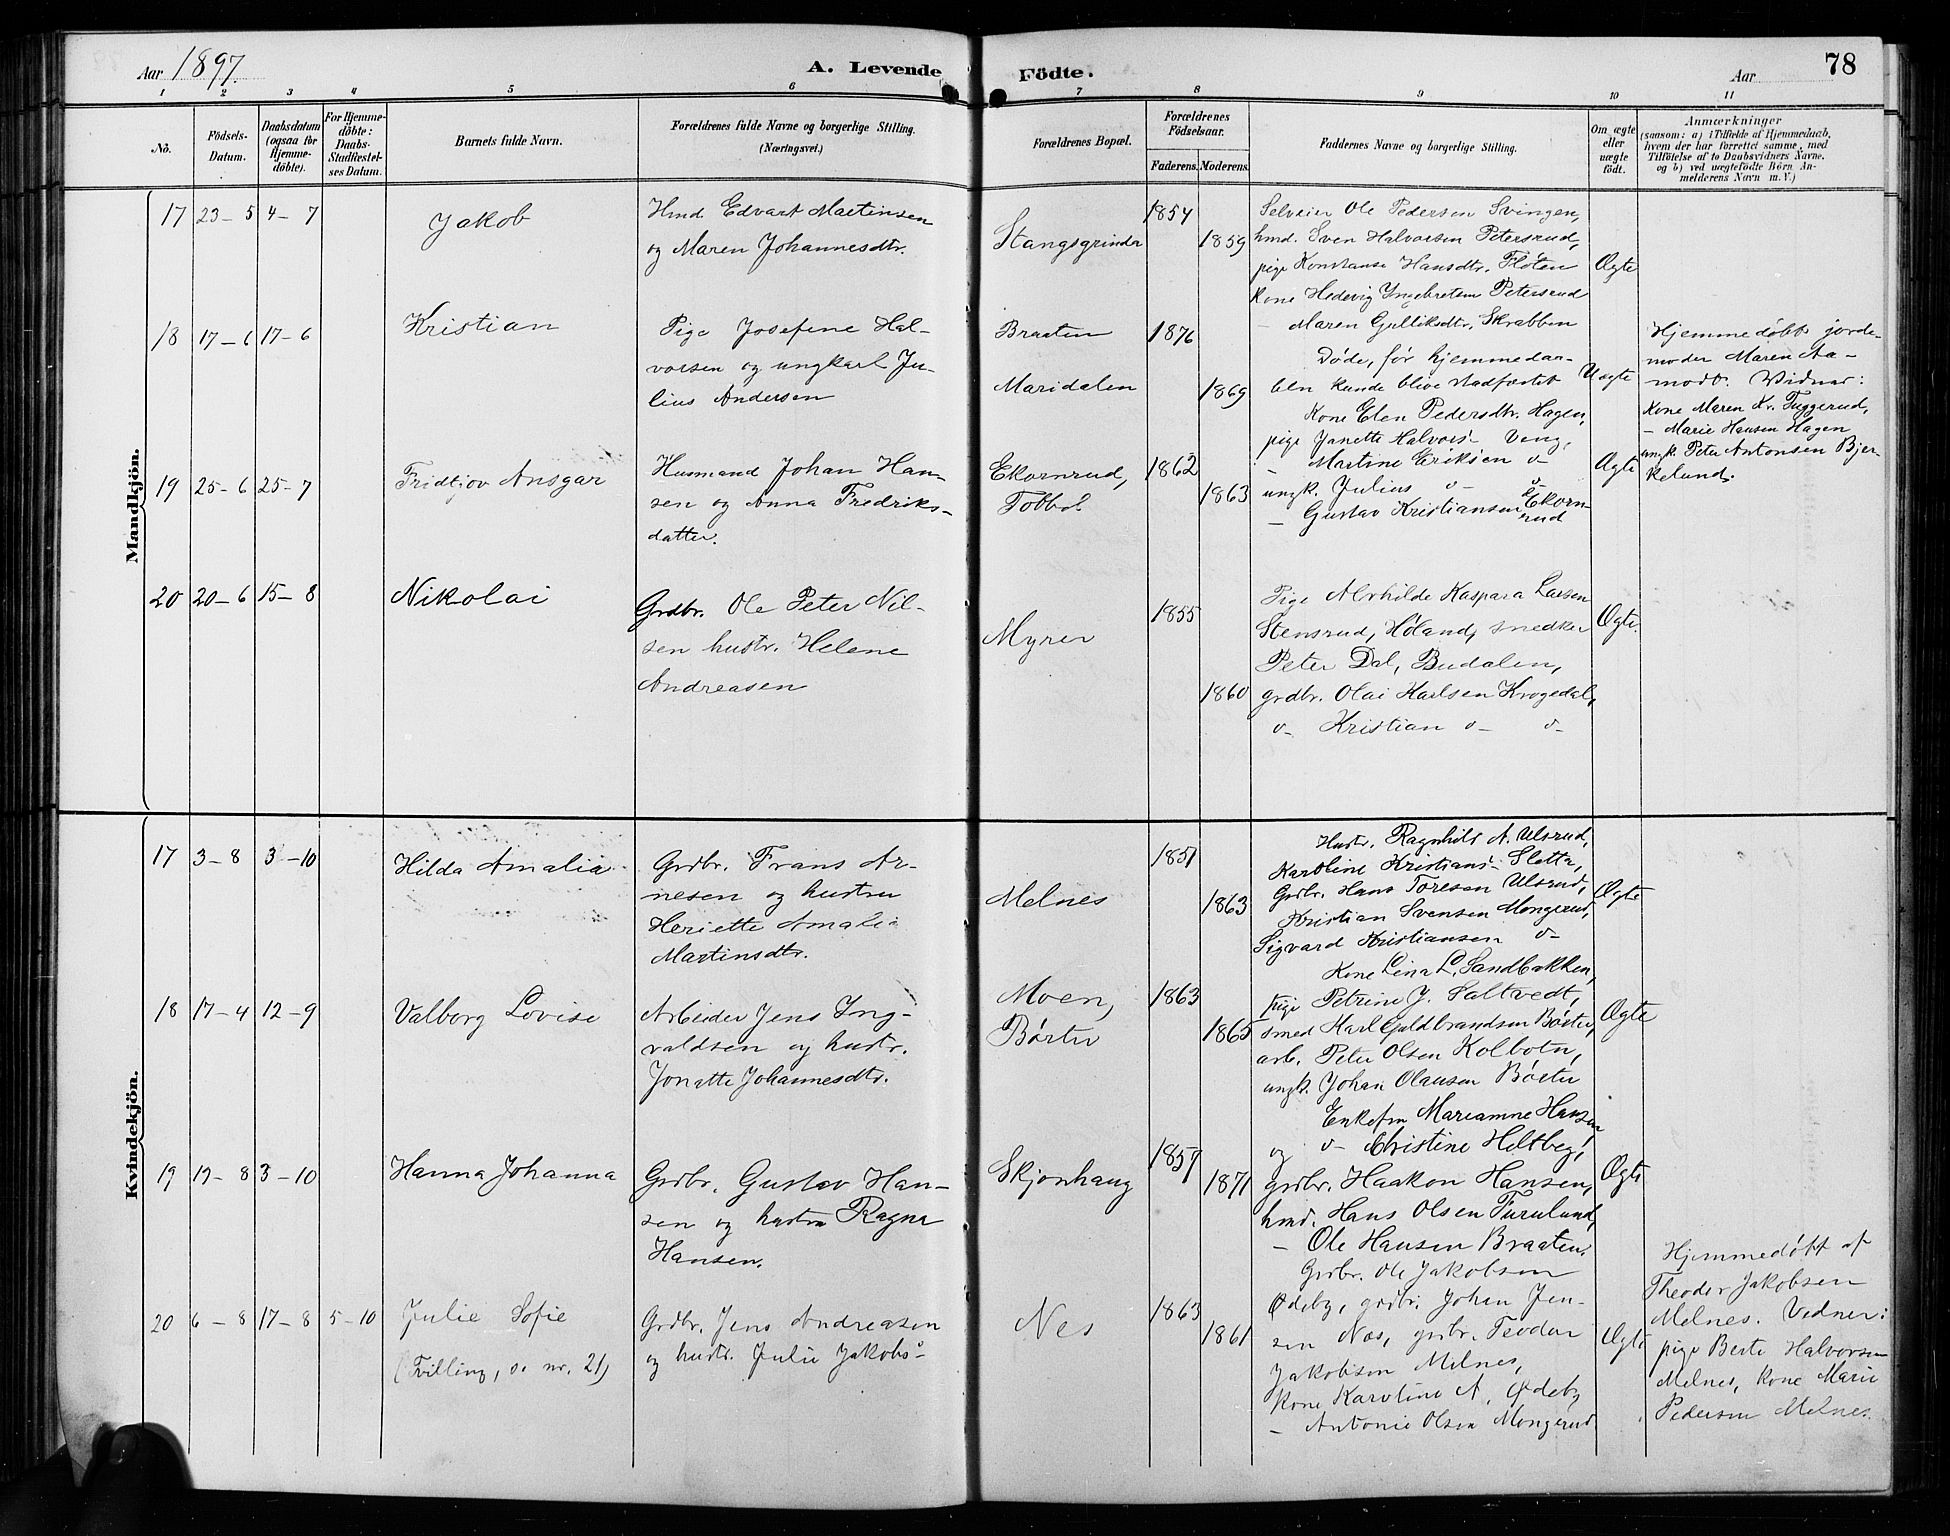 Aar 1897.
A. Levende
Födte.
Aar
78
1 2 3 4 5 6 7 8 9 10 11
No.
Födsels-
Datum.
Daabsdatum
(ogsaa for
Hjemme-
döbte).
For Hjemme-
döbte:
Daabs-
Stadfæstel-
ses Datum.
Barnets fulde Navn.
Forældrenes fulde Navne og borgerlige Stilling.
(Næringsvei.)
Forældrenes Bopæl.
Forældrenes
Födselsaar.
Faderens. Moderens.
Faddernes Navne og borgerlige Stilling.
Om ægte
eller
uægte
födt.
Anmærkninger
(saasom: a) i Tilfælde af Hjemmedaab,
hvem der har forrettet samme, med
Tilföielse af to Daabsvidners Navne,
og b) ved uægtefödte Börn An-
melderens Navn m. V.)
Mandkjön.
17 23-5 4-7
Jakob
Hmd Edvart Martinsen
og Maren Johannesdtr.
Stangsgrinder
1854
1859
Selveier Ole Pedersen Svingen,
hmd. Sven Halvorsen Petersrud,
pige Konstanse Hansdtr. Fløten
Kone Hedevig Yngebretsen Petersrud
– Maren Gulliksdtr. Skrabben
Ægte
18 17-6 17-6
Kristian
Pige Josefine Hal-
vorsen og ungkarl Ju-
lius Andersen
Braaten
Maridalen
1876
1869
Døde, før hjemmedaa-
ben kunde blive stadfæstet
Uægte
Hjemmedøbt jorde-
moder Maren Aa-
modt. Vidner:
Kone Maren Kr. Tuggerud,
– Marie Hansen Hagen
ungk. Peter Antonsen Bjer-
kelund.
19 25-6 25-7
Fridtjov Ansgar
Husmand Johan Han-
sen og Anna Fredriks-
datter.
Ekornrud,
1862
1863
Kone Elen Pedersdtr. Hagen,
pige Janette Halvors- Veng,
– Martine Eriksen o-
ungk. Julius o- o-
– Gustav Kristiansen Ekorn-
rud
Ægte
20 20-6 15-8
Nikolai
Grdbr. Ole Peter Nil-
sen hustr. Helene
Andreasen
Myrer
1855
1860
Pige Alvhilde Kaspara Larsen
Stensrud, Høland, snedker
Peter Dal, Budalen,
grdbr. Olai Karlsen Krogedal,
o- Kristian o- o-
Ægte.
Kvindekjön.
17 3-8 3-10
Hilda Amalia
Grdbr. Frans Ar-
nesen og hustru
Heriette Amalie
Martinsdtr.
Melnes
1851
1863
Hustr. Ragnhild A. Ulsrud,
Karoline Kristians- Sletta,
Grdbr. Hans Toresen Ulsrud,
Kristian Svensen Mongerud,
Sigvard Kristiansen o-
Ægte
18 17-4 12-9
Valborg Lovise
Arbeider Jens Ing-
valdsen og hustr.
Jonette Johannesdtr.
Moen,
Børter
1863
1865
Kone Lina L. Sandbakken,
pige Petrine J. Saltvedt,
smed Karl Guldbrandsen Børter,
arb. Peter Olsen Kolbotn,
ungk. Johan Olausen Børter
Ægte
19 19-8 3-10
Hanna Johanna
Grdbr. Gustav Han-
sen og hustru Ragna
Hansen.
Skjønhaug
1859
1871
Enkefru Marianne Hansen
og o- Christine Heltbeg,
grdbr. Haakon Hansen,
hmd. Hans Olsen Furulund,
– Ole Hansen Braaten.
Ægte
20 6-8 17-8 5-10
Julie Sofie
(Tvilling, s. nr. 21)
Grdbr. Jens Andreasen
og hustr. Julie Jakobs-
Nes
1863
1861
Grdbr. Ole Jakobsen
Ødeby, grdbr. Johan Jen-
sen Nes, grdbr. Teodor
Jakobsen Melnes,
Kone Karoline A. Ødeby
– Antonie Olsen Mongerud
Ægte
Hjemmedøbt af
Theodor Jakobsen
Melnes. Vidner:
pige Berte Halvorsen
Melnes, kone Marie
Pedersen Melnes.